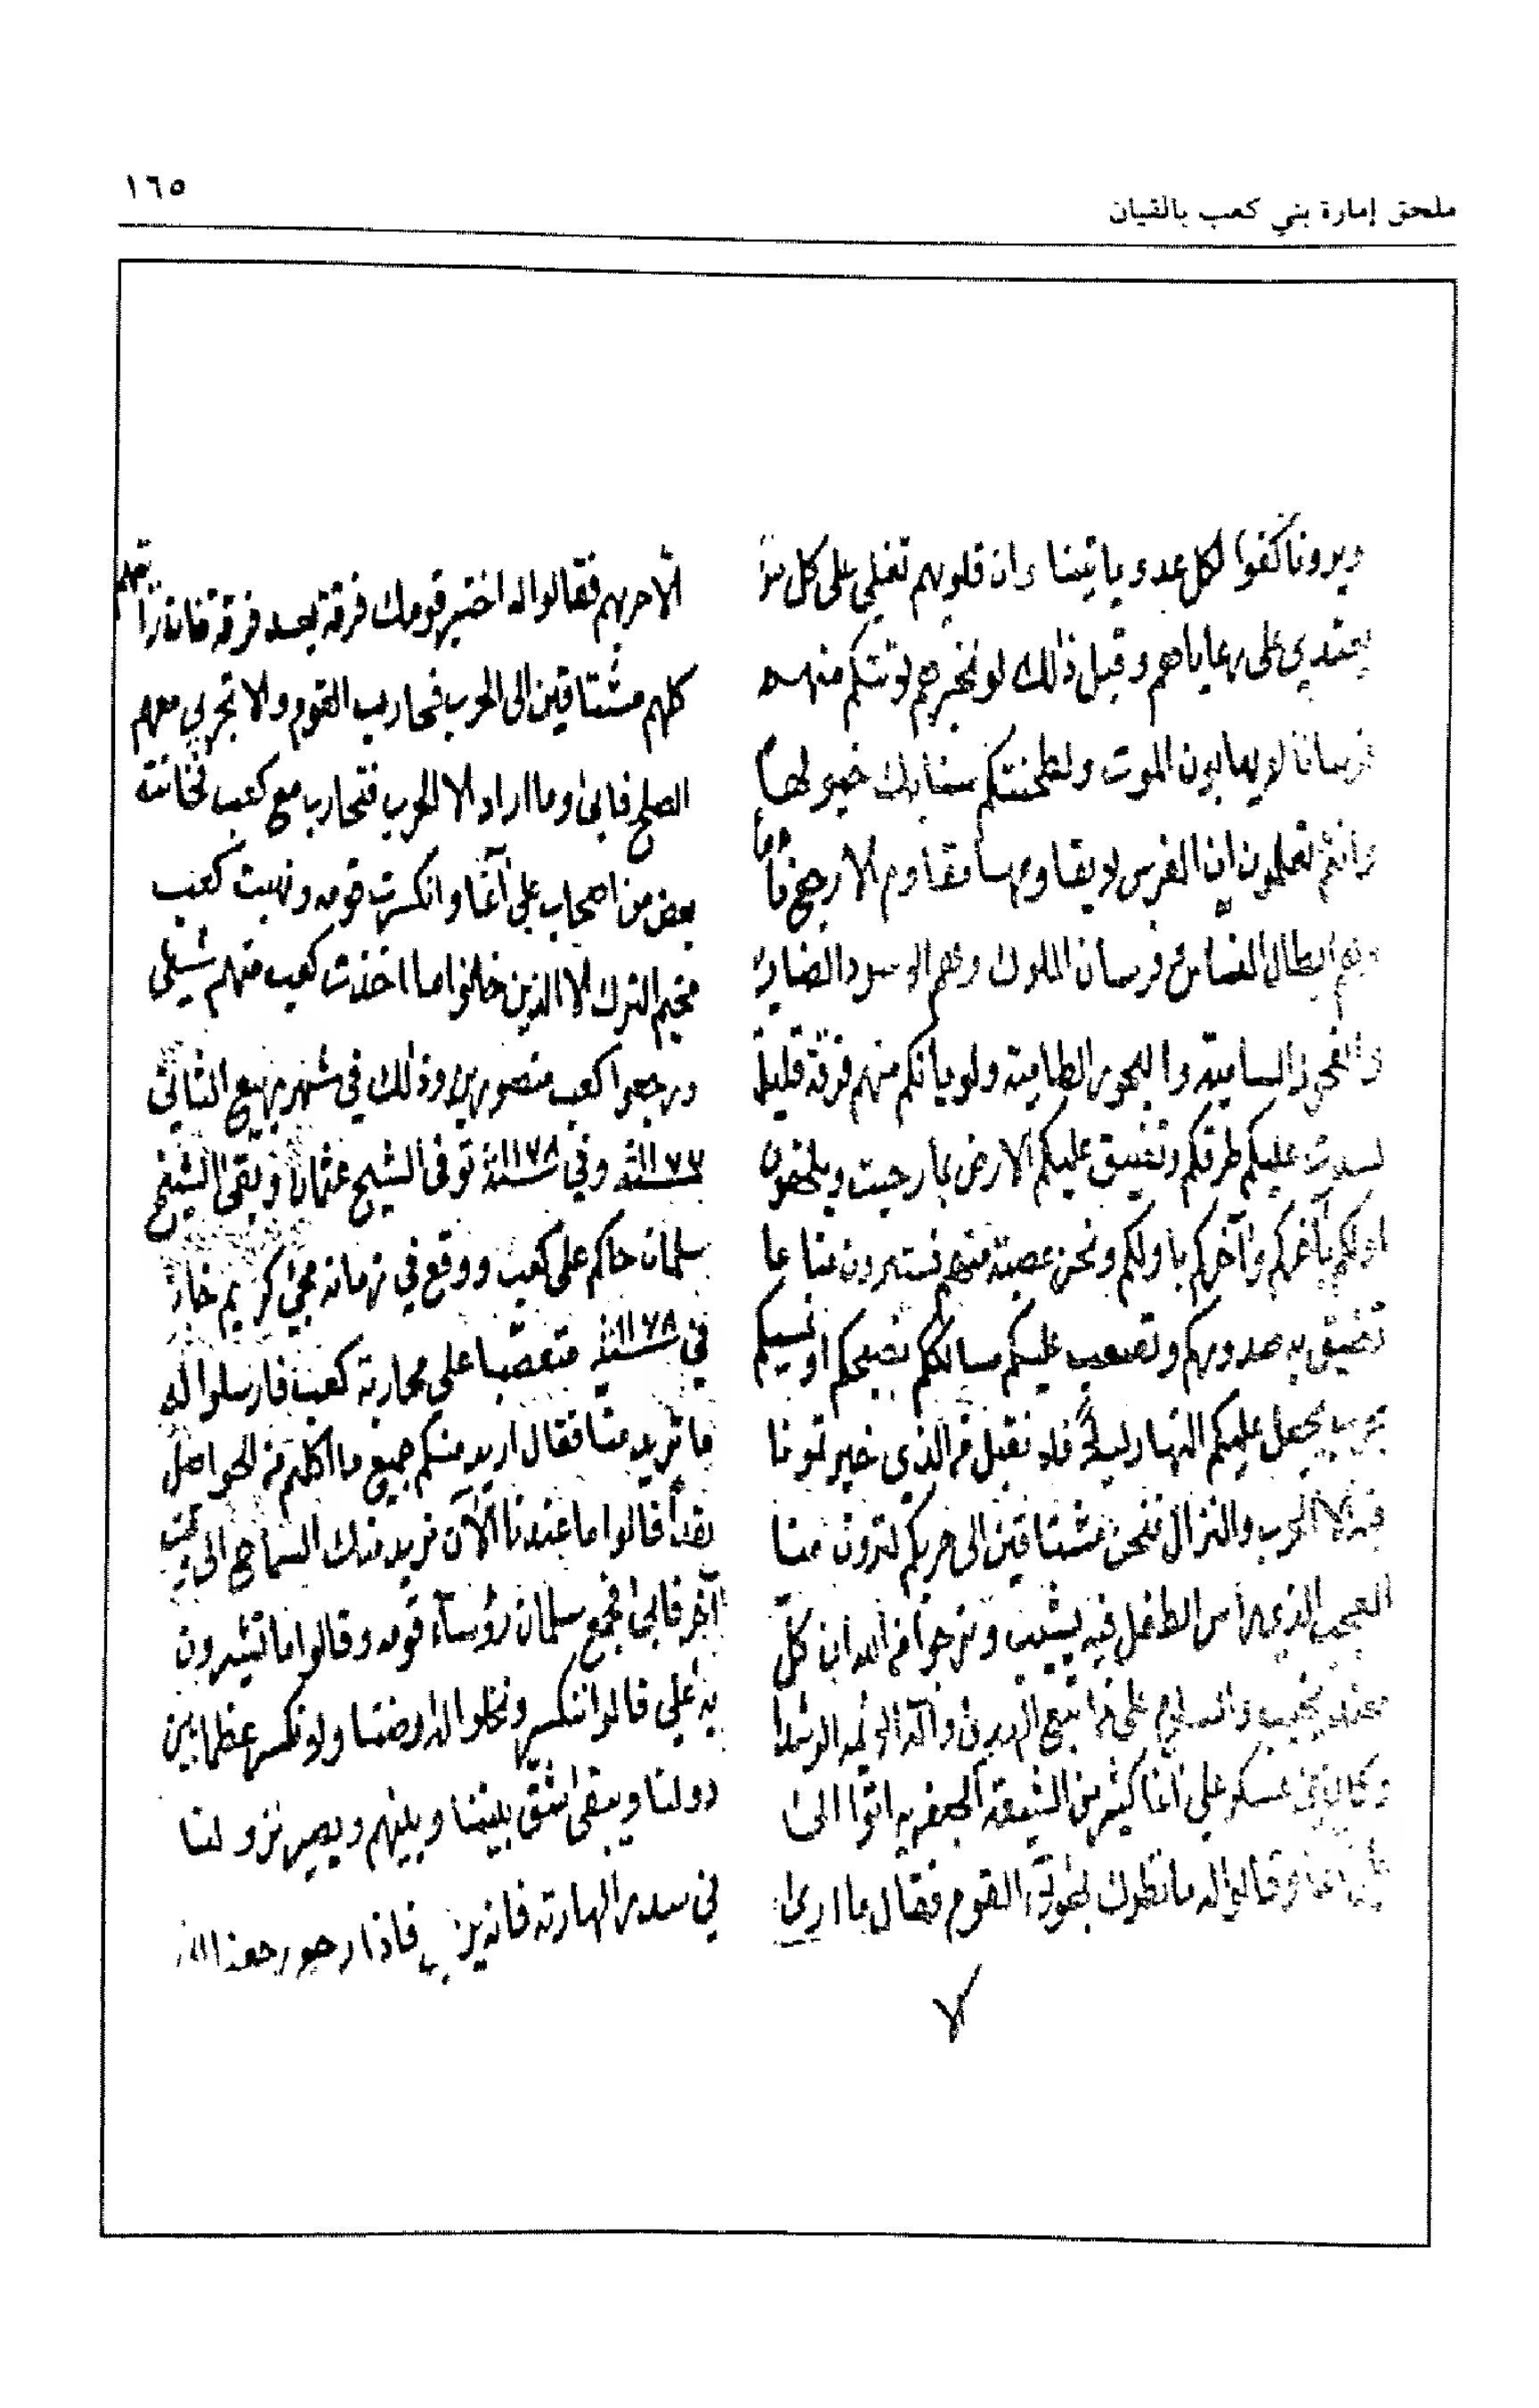 ملحق إمارة بني كعب بالقيان
١٦٥
ويرونا كفوا لكل عدو ياتينا وان قلوبهم تغلي على كل
يعتدي على رعاياهم وقبل ذلك لو نخبرهم لوتتكم منهم
فرسانا لا يهابون الموت ولطحنتكم سنابك خيولها
وانتم تعلمون ان الفرس لا يقاومها مقاوم الا رجع
وهم ابطال الفساس فرسان الملوك وهم الاسود الضارية
والفحول السامية والبحور الطامية ولو ياتكم منهم فرقة قليلة
لسدت عليكم طرقكم وتضيق عليكم الارض بما رحبت ويلحقون
اولكم بآخركم وآخركم باولكم ونحن عصبة منهم فسترون منا ما
تضيق به صدوركم وتصعب عليكم مسالككم نصبحكم او نمسيكم
بحرب يجعل عليكم النهار ليلا فلا نقبل من الذي خيرتونا
فيه الا الحرب والنزال فنحن مشتاقين الى حربكم لترون منا
العجب الذي راس الطفل فيه يشيب ونرجوا من الله ان كل
يخيب والسلام على من اتبع الهدى
وكان في عسكر علي آغا كثير من الشيعة الجعفريه اتوا الى
علي اغا وقالوا له ما نظرك بهؤلاء القوم فقال ما ارى
لا
الا حربهم فقالوا له اختبر قومك فرقة بعد فرقة
كلهم مشتاقين الى الحرب فحارب القوم ولا تجري معهم
الصلح فابى وما اراد الا الحرب فتحارب مع كعب فخانته
بعض من اصحاب علي آغا وانكسرت قومه ونهبت كعب
مخيم الترك الا الذين خانوا ما اخذت كعب منهم شيئى
ورجعوا كعب منصورين وذلك في شهر ربيع الثاني
سنة ١١٧٧ وفي سنة ١١٧٨ توفى الشيخ عثمان وبقى الشيخ
سلمان حاكم على كعب ووقع في زمانه مجئ كريم خان
في سنة ١١٧٨ متعصبا على محاربة كعب فارسلوا له
ما تريد منا فقال اريد منكم جميع ما اكلتم من الحواصل
نقدا قالوا ما عندنا الآن نريد منك السماح الى
آخر فابى فجمع سلمان رؤساء قومه وقالوا ما تشيرون
به علي قالوا ننكسر ونخلوا له ارضنا ولا نكسر عظما بين
دولنا ويبقى شق بيننا وبينهم ويصير نزولنا
في سدر الهارته فاذا رجع رجعنا